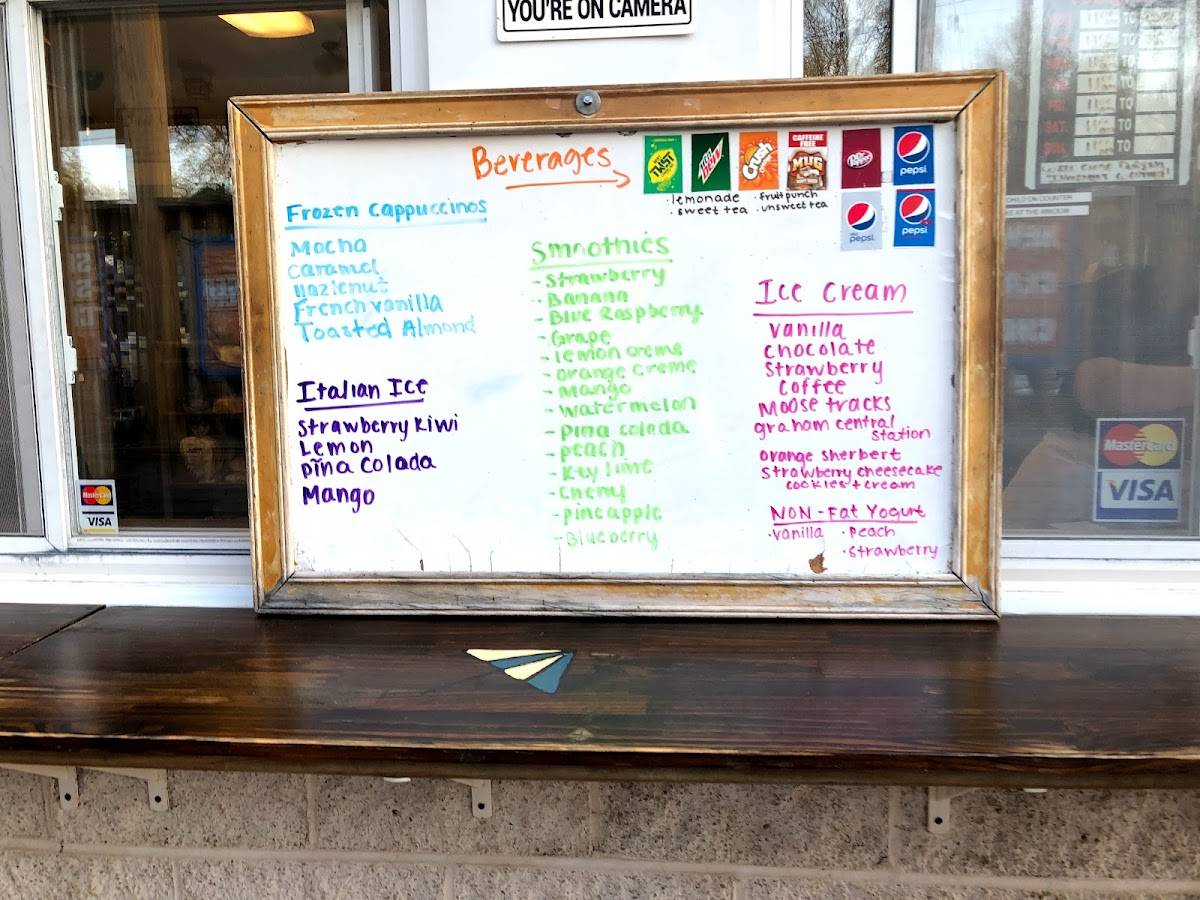 YOU'RE ON CAMERA
Beverages
TWIST
Mtn Dew
Crush
CAFFEINE FREE
MUG
Dr Pepper
pepsi
pepsi
pepsi
· lemonade · fruit punch
· sweet tea · unsweet tea
Frozen Cappuccinos
Mocha
Caramel
Hazlenut
French vanilla
Toasted Almond
Italian Ice
Strawberry Kiwi
Lemon
pĩna Colada
Mango
Smoothies
- Strawberry
- Banana
- Blue Raspberry
- Grape
- lemon creme
- orange creme
- Mango
- watermelon
- pina colada
- peach
- Key lime
- cherry
- pineapple
- Blueberry
Ice Cream
Vanilla
Chocolate
Strawberry
Coffee
Moose tracks
graham central
station
orange sherbert
Strawberry cheesecake
cookies + cream
NON-Fat Yogurt
· vanilla · peach
· strawberry
MasterCard
VISA
MasterCard
VISA